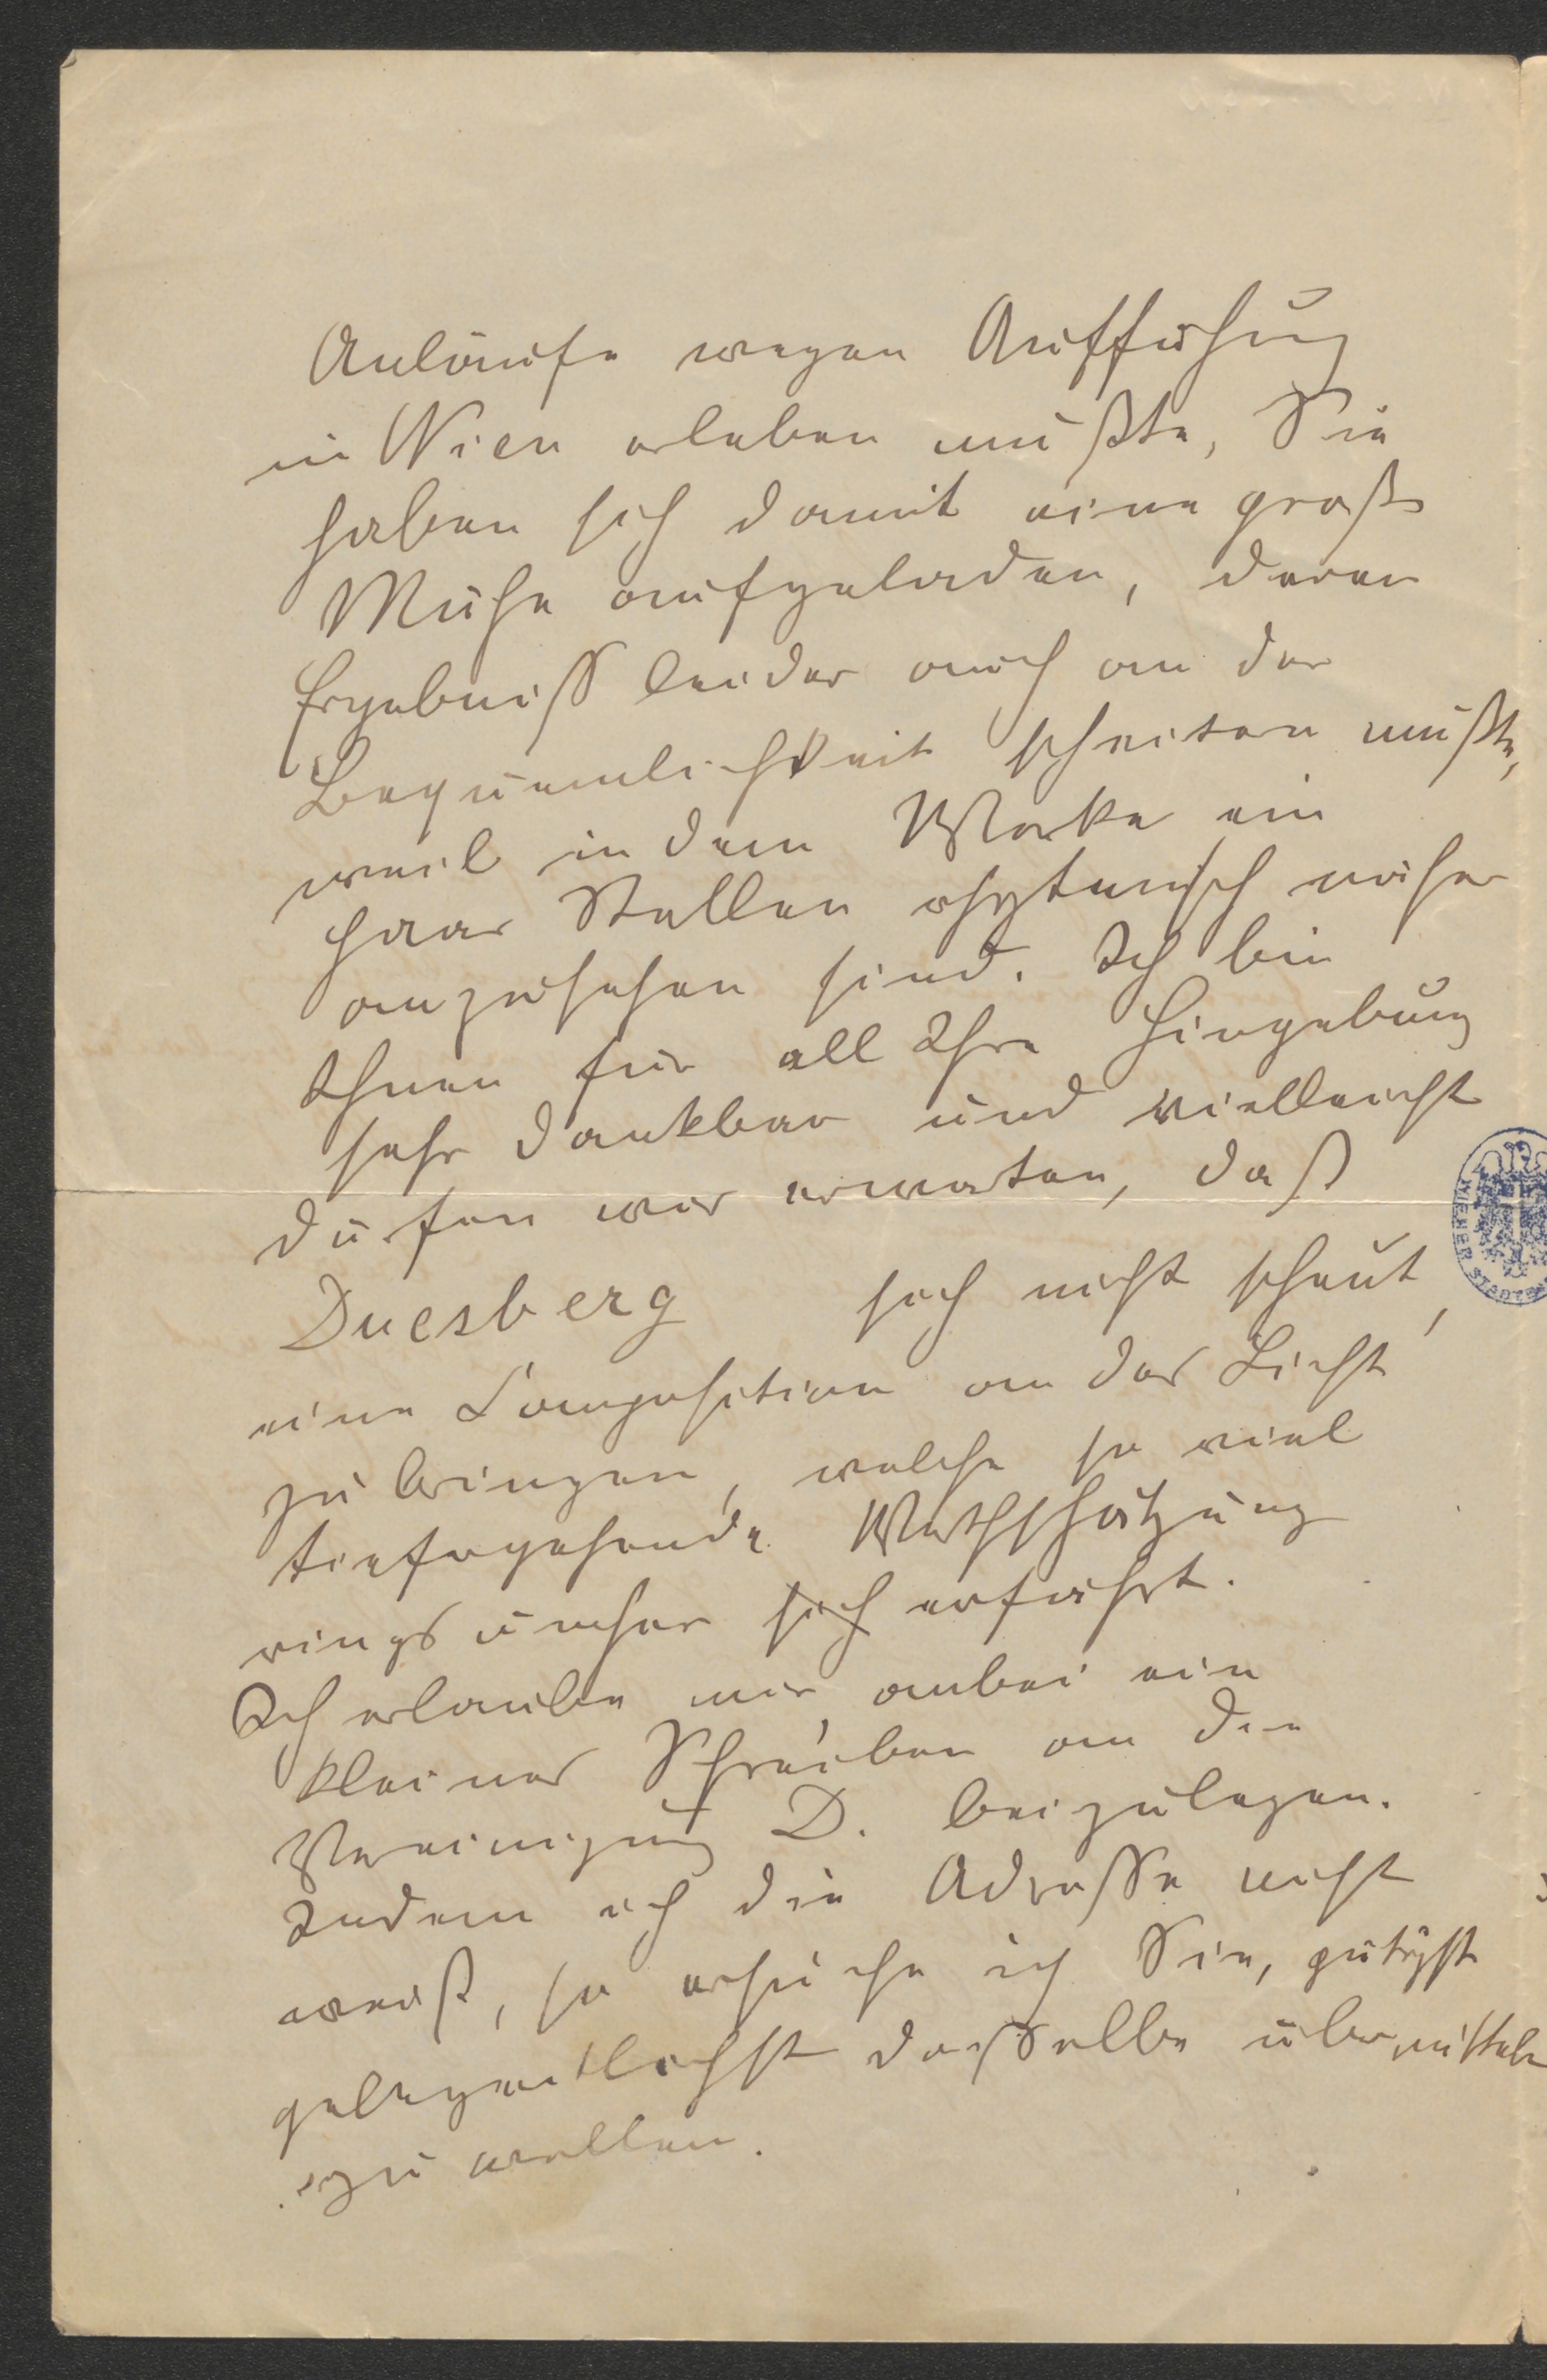 Anläufe wegen Aufführung
in Wien erleben mußte, Sie
haben sich damit eine große
Mühe aufgeladen, deren
Ergebniß leider auch an der
Bequemlichkeit scheitern mußte,
weil in dem Werke ein
paar Stellen rhytmisch näher
anzusehen sind. Ich bin
Ihnen für all Ihre Hingebung
sehr dankbar und vielleicht
dürfen wir erwarten, daß
Duesberg sich nicht scheut,
eine Composition an das Licht
zu bringen, welche so viel
tiefergehende Werthschätzung
ringsumher sich erfährt.
Ich erlaube mir, anbei ein
kleines Schreiben an die
Vereinigung D. beizulegen.
Indem ich die Adresse nicht
weiß, so ersuche ich Sie, gütigst
gelegentlichst dasselbe übermitteln
zu wollen.
WIENER STADTB